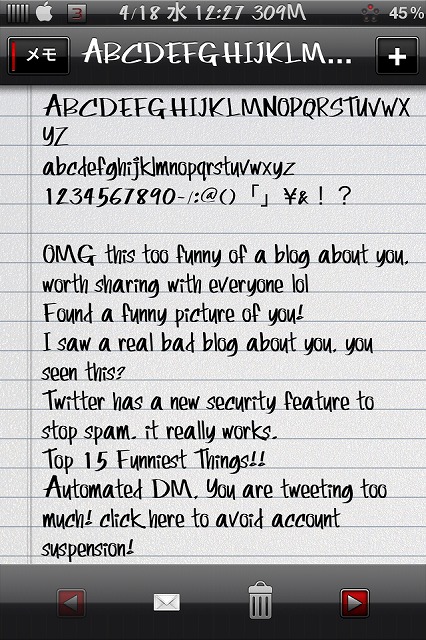 4/18 水 12:27 309M 45%
メモ ABCDEFGHIJKLM... +
ABCDEFGHIJKLMNOPQRSTUVWX
YZ
abcdefghijklmnopqrstuvwxyz
1234567890-/:@()「」¥&！？
OMG this too funny of a blog about you,
worth sharing with everyone lol
Found a funny picture of you!
I saw a real bad blog about you, you
seen this?
Twitter has a new security feature to
stop spam. it really works.
Top 15 Funniest Things!!
Automated DM, You are tweeting too
much! click here to avoid account
suspension!